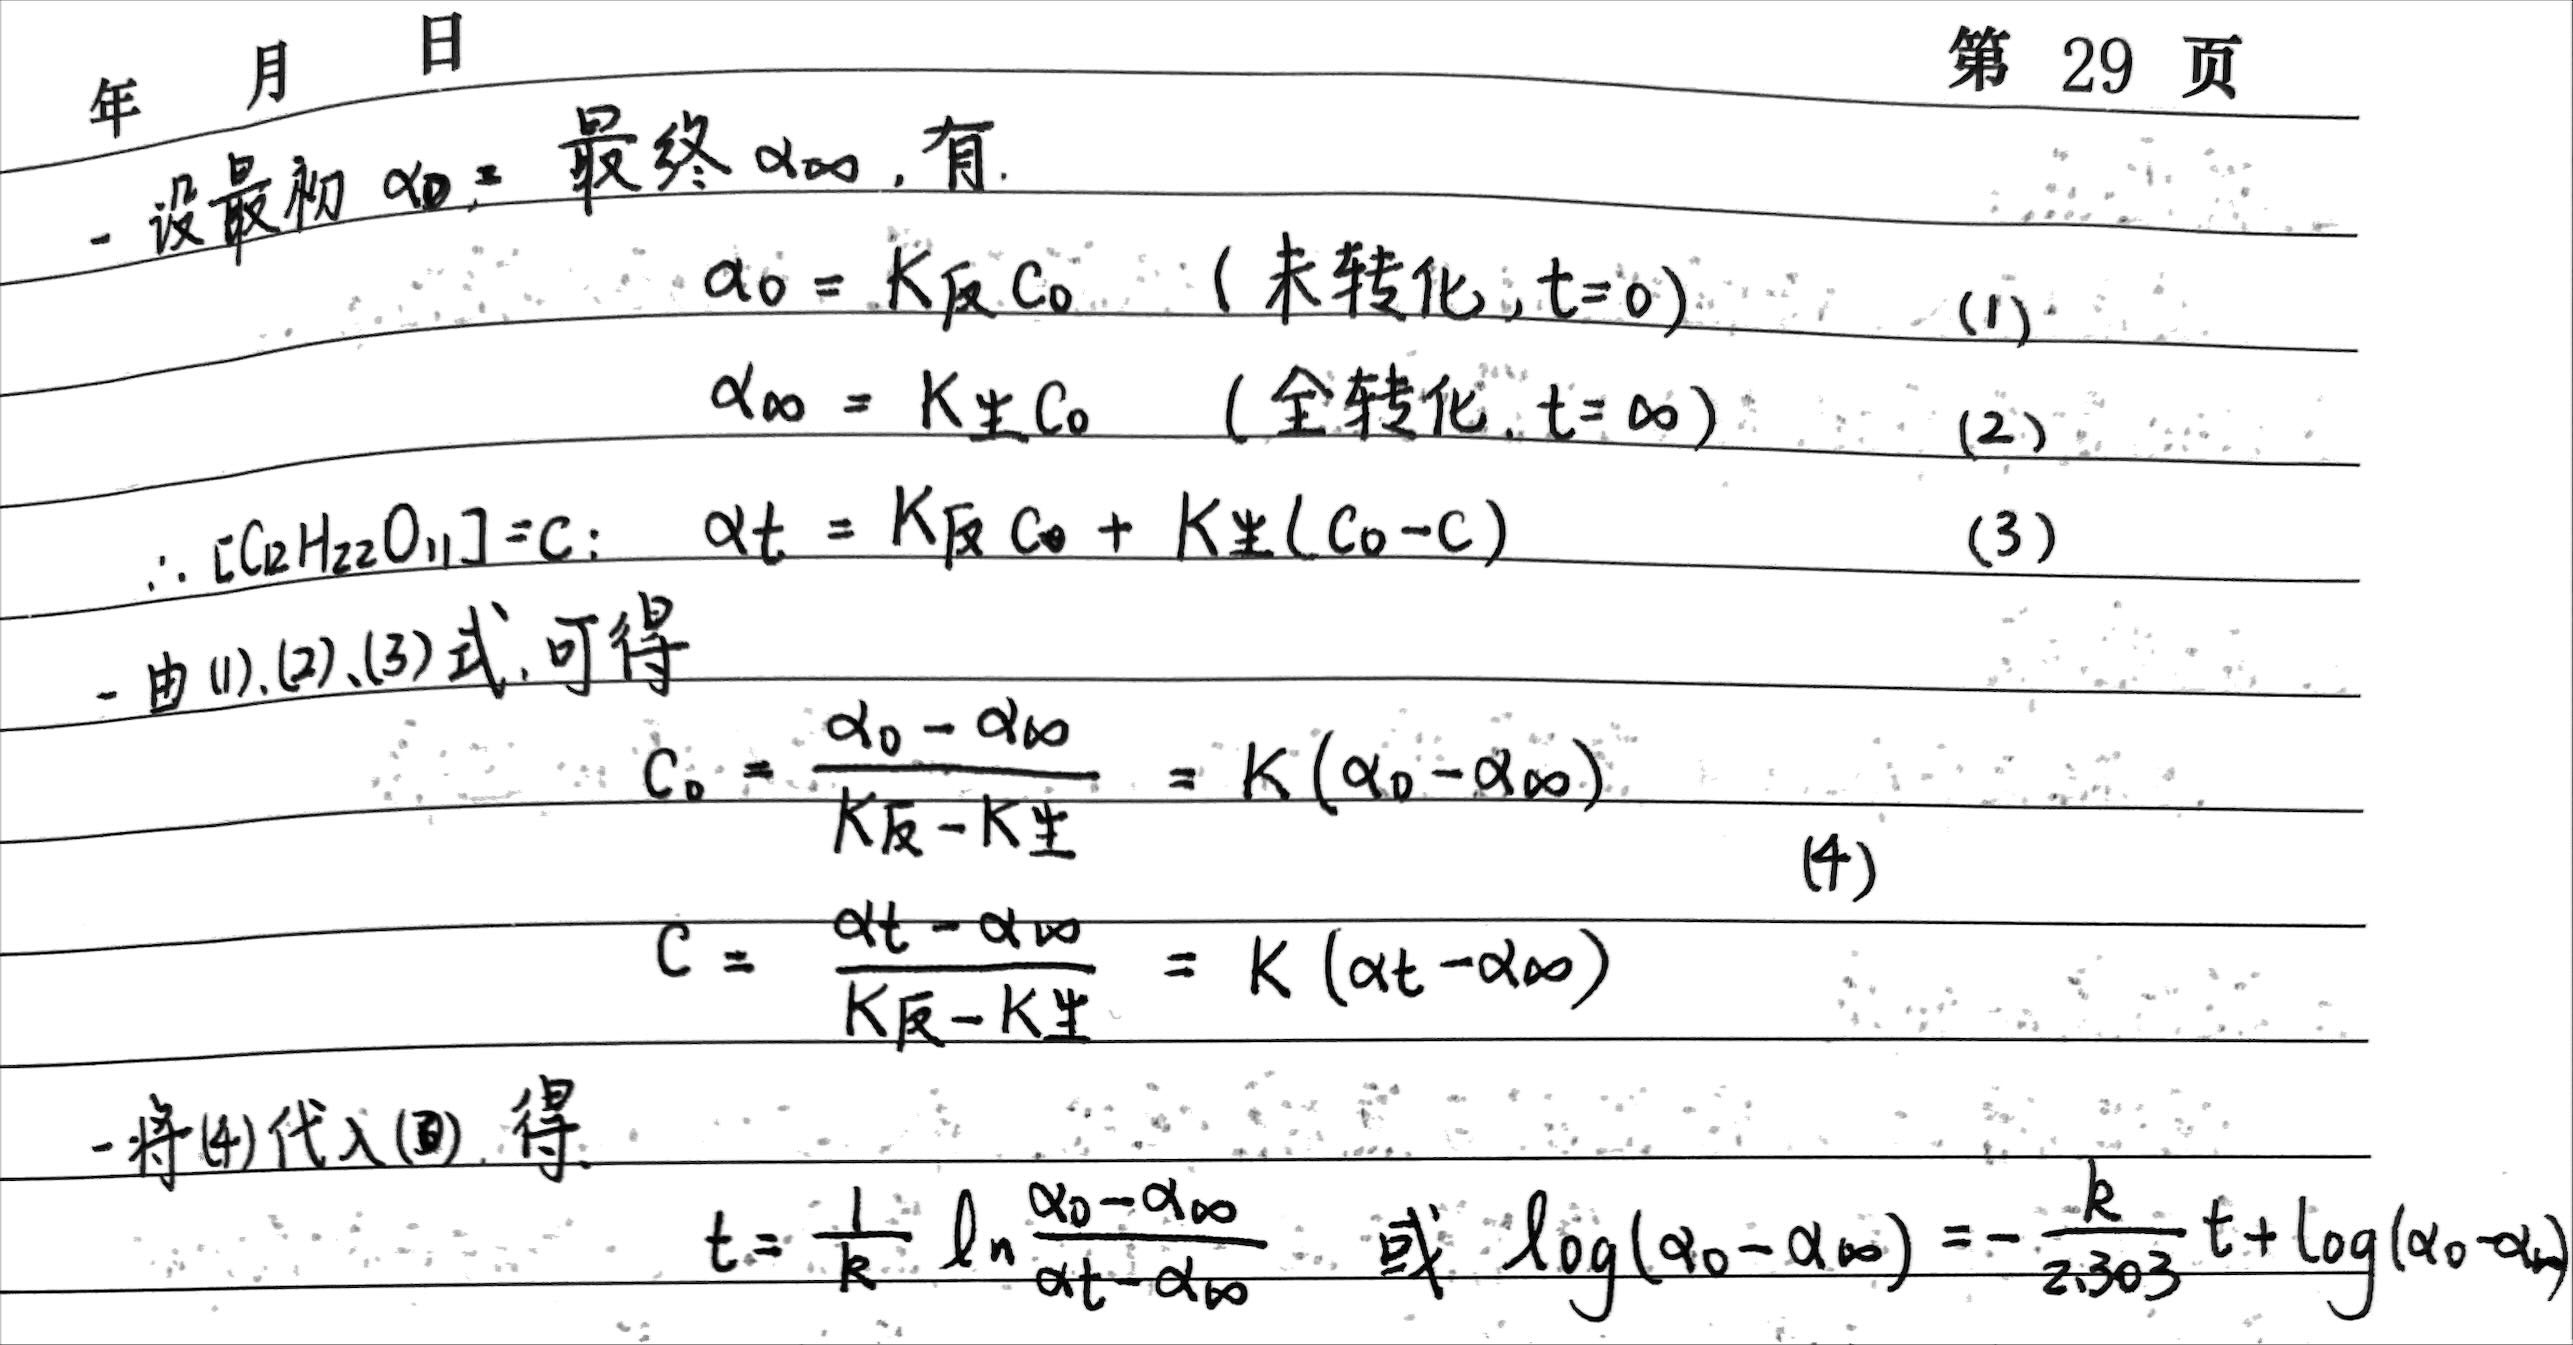 年 月 日 第 29 页
- 设最初 α₀: 最终 α∞, 有.
α₀ = K反 C₀ (未转化, t=0) (1)
α∞ = K生 C₀ (全转化, t=∞) (2)
∴ [C₁₂H₂₂O₁₁]=C: αt = K反 C₀ + K生(C₀-C) (3)
- 由(1)、(2)、(3)式, 可得
C₀ = (α₀ - α∞)/(K反 - K生) = K(α₀-α∞)
(4)
C = (αt - α∞)/(K反 - K生) = K(αt-α∞)
- 将(4)代入( ), 得
t = 1/k ln (α₀-α∞)/(αt-α∞) 或 log(α₀-α∞) = - k/2.303 t + log(α₀-α∞)